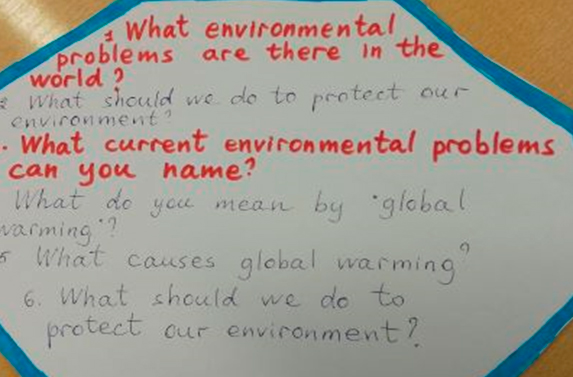 1 What environmental
problems are there in the
world?
2 What should we do to protect our
environment?
. What current environmental problems
can you name?
What do you mean by "global
warming"?
5 What causes global warming?
6. What should we do to
protect our environment?